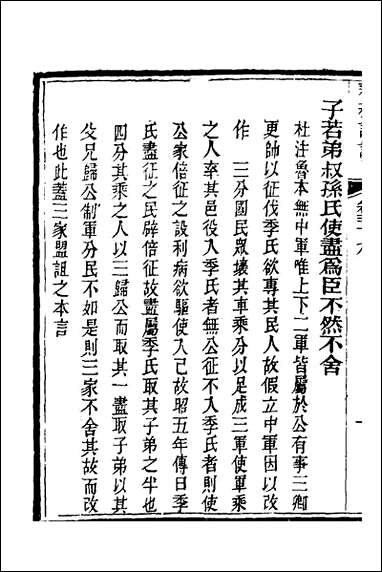 子若弟叔孫氏使盡為臣不然不舍
杜注魯本無中軍唯上下二軍皆屬於公有事三卿
更帥以征伐季氏欲專其民人故假立中軍因以改
作 三分國民眾壞其車乘分以足成三軍使軍乘
之人率其邑役入季氏者無公征不入季氏者則使
公家倍征之設利病欲驅使入己故昭五年傳曰季
氏盡征之民辟倍征故盡屬季氏取其子弟之半也
四分其乘之人以三歸公而取其一盡取子弟以其
父兄歸公制軍分民不如是則三家不舍其故而改
作也此蓋三家盟詛之本言